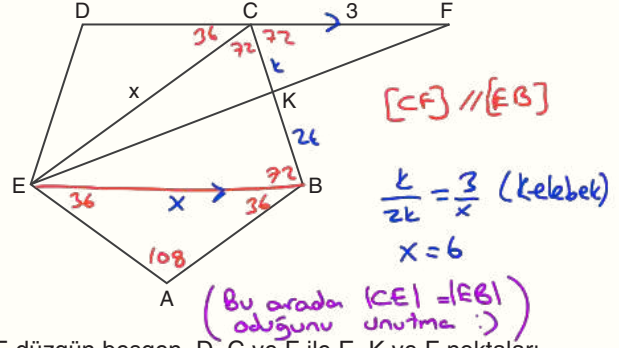 D C 3 F
36 72 72
k
x K
[CF] // [EB]
2k
E 72 B
36 x 36
k/2k = 3/x (kelebek)
x = 6
108
A
(Bu arada |CE| = |EB|
oduğunu unutma :))
düzgün beşgen, D, C ve F ile E, K ve F noktaları